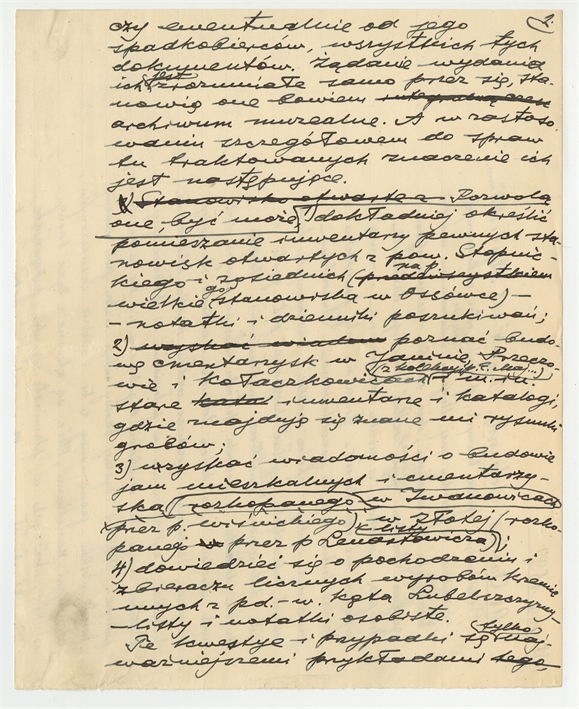 2.
czy ewentualnie od jego
spadkobierców, wszystkich tych
dokumentów. Żądanie wydania
ich jest zrozumiałe samo przez się, sta-
nowią one bowiem
archiwum muzealne. A w zastoso
waniu szczegółowem do spraw
tu traktowanych znaczenie ich
jest następujące.
1) Stanowisko otwarte z Pozwolą
one, być może, 1) dokładniej określić
pomieszanie inwentarzy pewnych sta
nowisk otwartych z pow. Stopnic-
kiego i sąsiednich (przedewszystkiem np.
wielkiego stanowiska w Ossówce) —
— notatki i dzienniki poszukiwań;
2) uzyskać wiadom poznać budo-
wę cmentarzysk w Janinie, Przeczo-
wie i Kołaczkowicach (z kolekcji p. E. Maj...) i m. in.
stare kata inwentarze i katalogi,
gdzie znajdują się znane mi rysunki
grobów;
3) uzyskać wiadomości o budowie
jam mieszkalnych i cmentarzy-
ska (rozkopanego w Iwanowicach
przez p. wiśnickiego) i w Złotej (rozko-
panego w przez p Lenartowicza) — listy;
4) dowiedzieć się o pochodzeniu i
zbieraczu licznych wyrobów krzemie
nnych z pd.-w. kąta Lubelszczyzny
— listy i notatki osobiste.
Te kwestye i przypadki są tylko naj-
ważniejszemi przykładami tego,